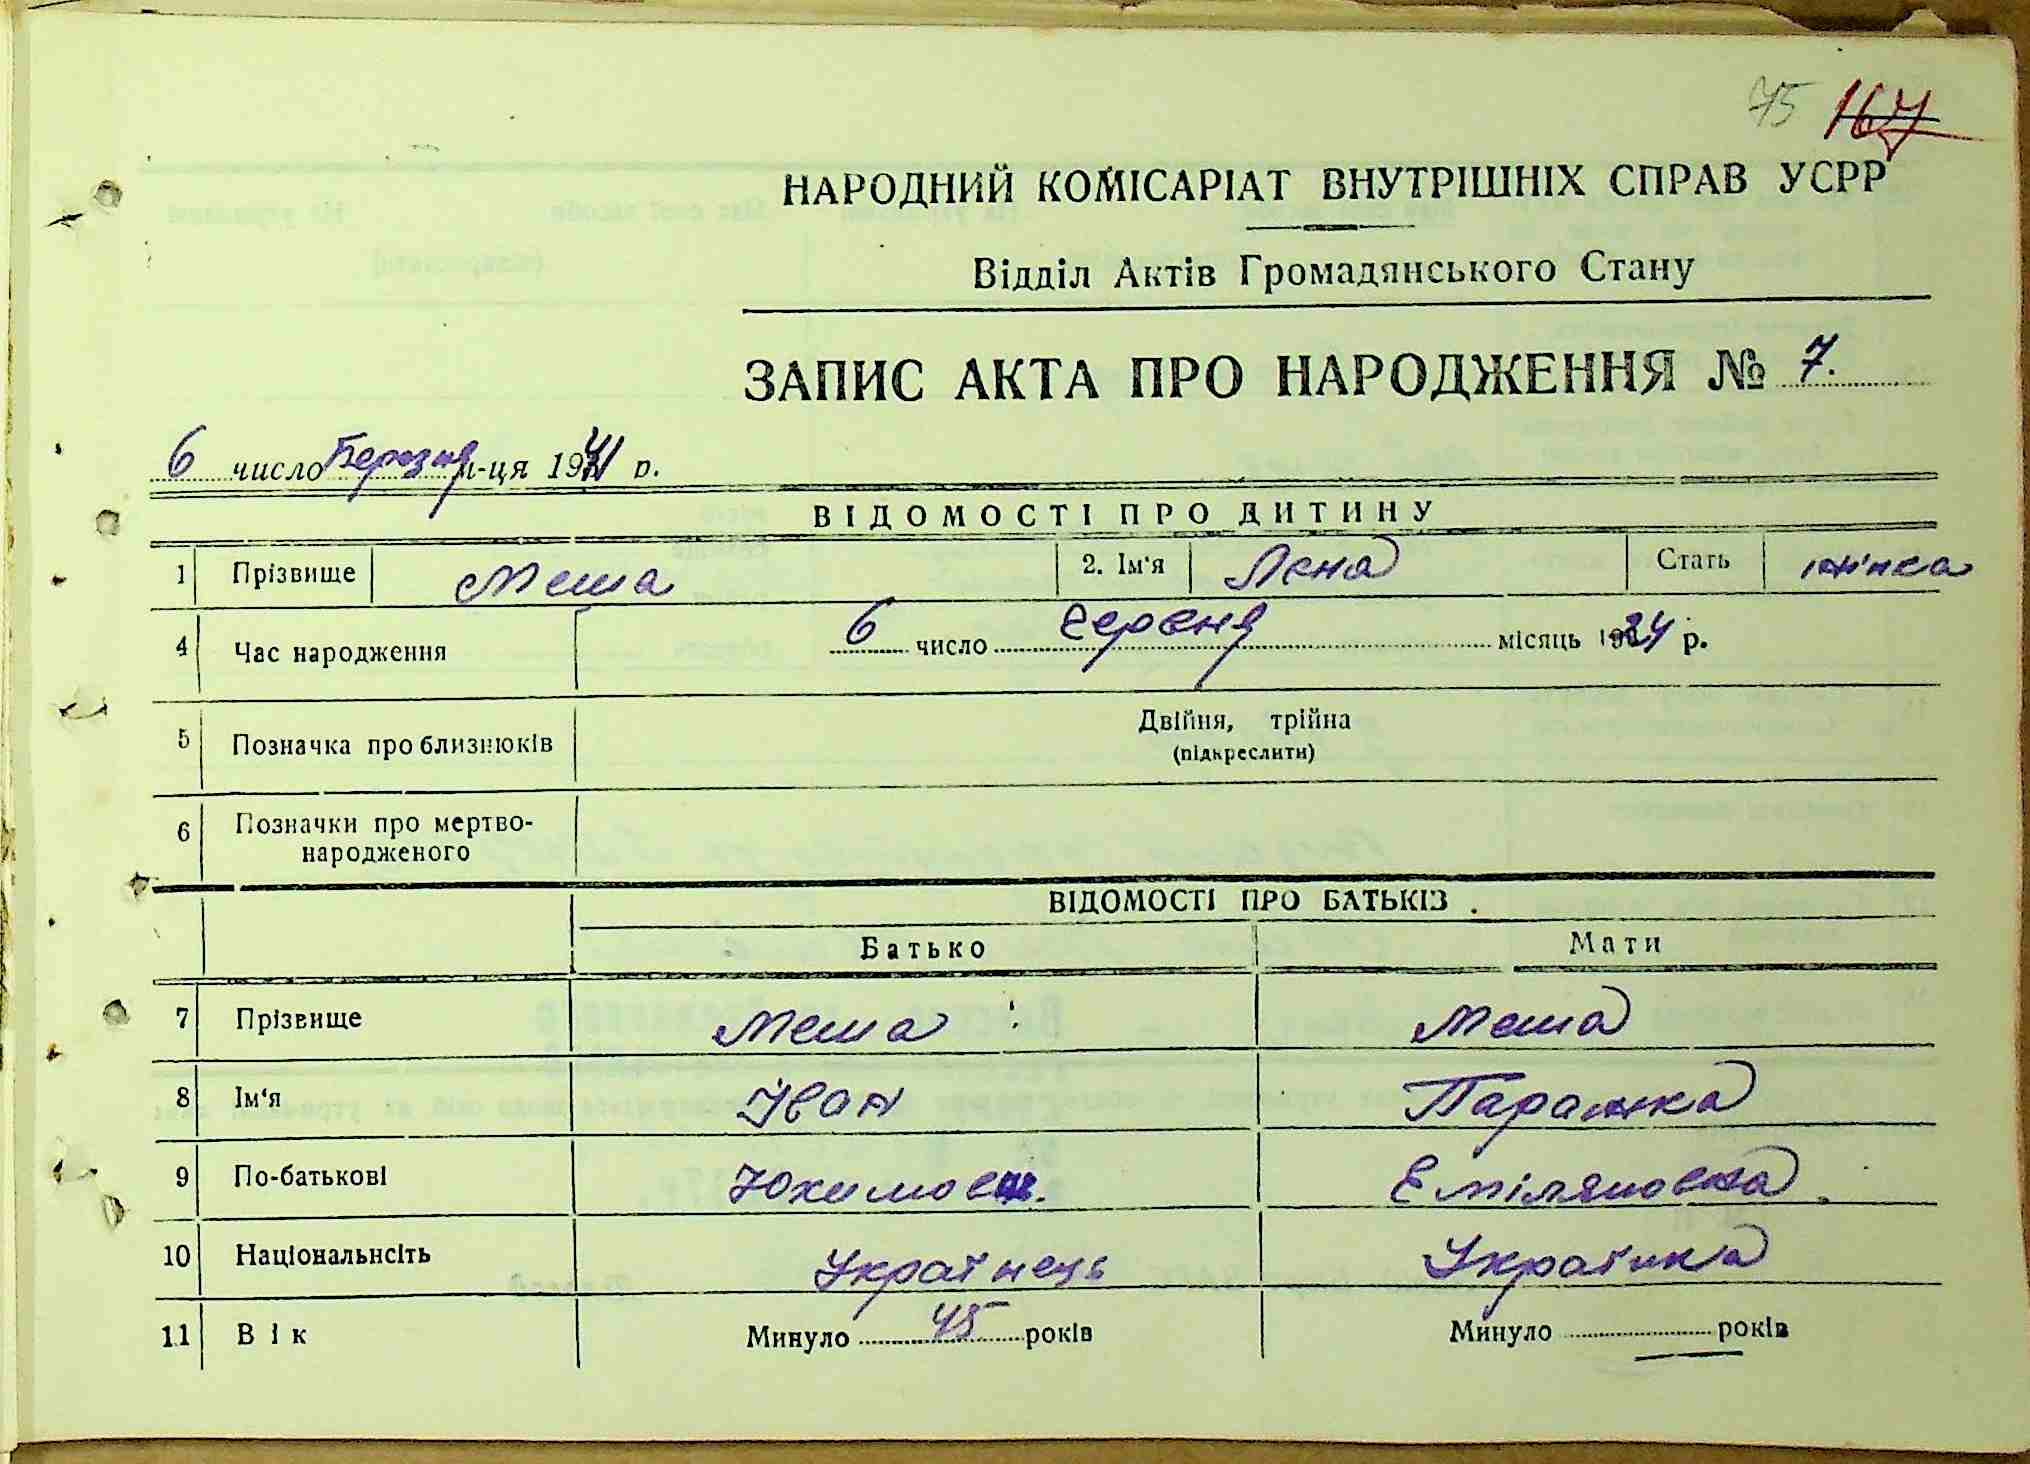 75 167
НАРОДНИЙ КОМІСАРІАТ ВНУТРІШНІХ СПРАВ УСРР
Відділ Актів Громадянського Стану
ЗАПИС АКТА ПРО НАРОДЖЕННЯ № 7.
6 число Березня м-ця 1941 р.
ВІДОМОСТІ ПРО ДИТИНУ
1 Прізвище Меша 2. Ім'я Лєна Стать жінка
4 Час народження 6 число Червня місяць 1924 р.
5 Позначка про близнюків Двійня, трійна
(підкреслити)
6 Позначки про мертво-
народженого
ВІДОМОСТІ ПРО БАТЬКІВ
Батько Мати
7 Прізвище Меша Меша
8 Ім'я Іван Парашка
9 По-батькові Юхимович. Еміляновна.
10 Національнсіть Українець Українка
11 Вік Минуло 45 років Минуло років